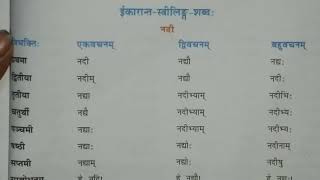 ईकारान्त-स्त्रीलिङ्ग-शब्दः
नदी
विभक्तिः एकवचनम् द्विवचनम् बहुवचनम्
प्रथमा नदी नद्यौ नद्यः
द्वितीया नदीम् नद्यौ नदीः
तृतीया नद्या नदीभ्याम् नदीभिः
चतुर्थी नद्यै नदीभ्याम् नदीभ्यः
पञ्चमी नद्याः नदीभ्याम् नदीभ्यः
षष्ठी नद्याः नद्योः नदीनाम्
सप्तमी नद्याम् नद्योः नदीषु
हे नदि! हे नद्यौ! हे नद्यः!